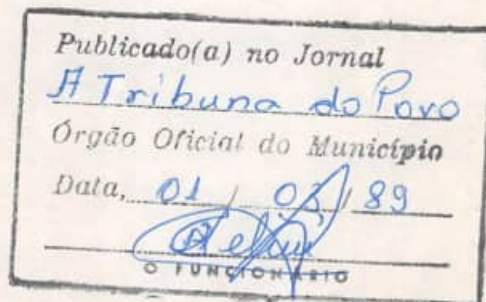 Publicado(a) no Jornal
A Tribuna do Povo
Órgão Oficial do Município
Data, 01 / 03 / 89
O FUNCIONÁRIO